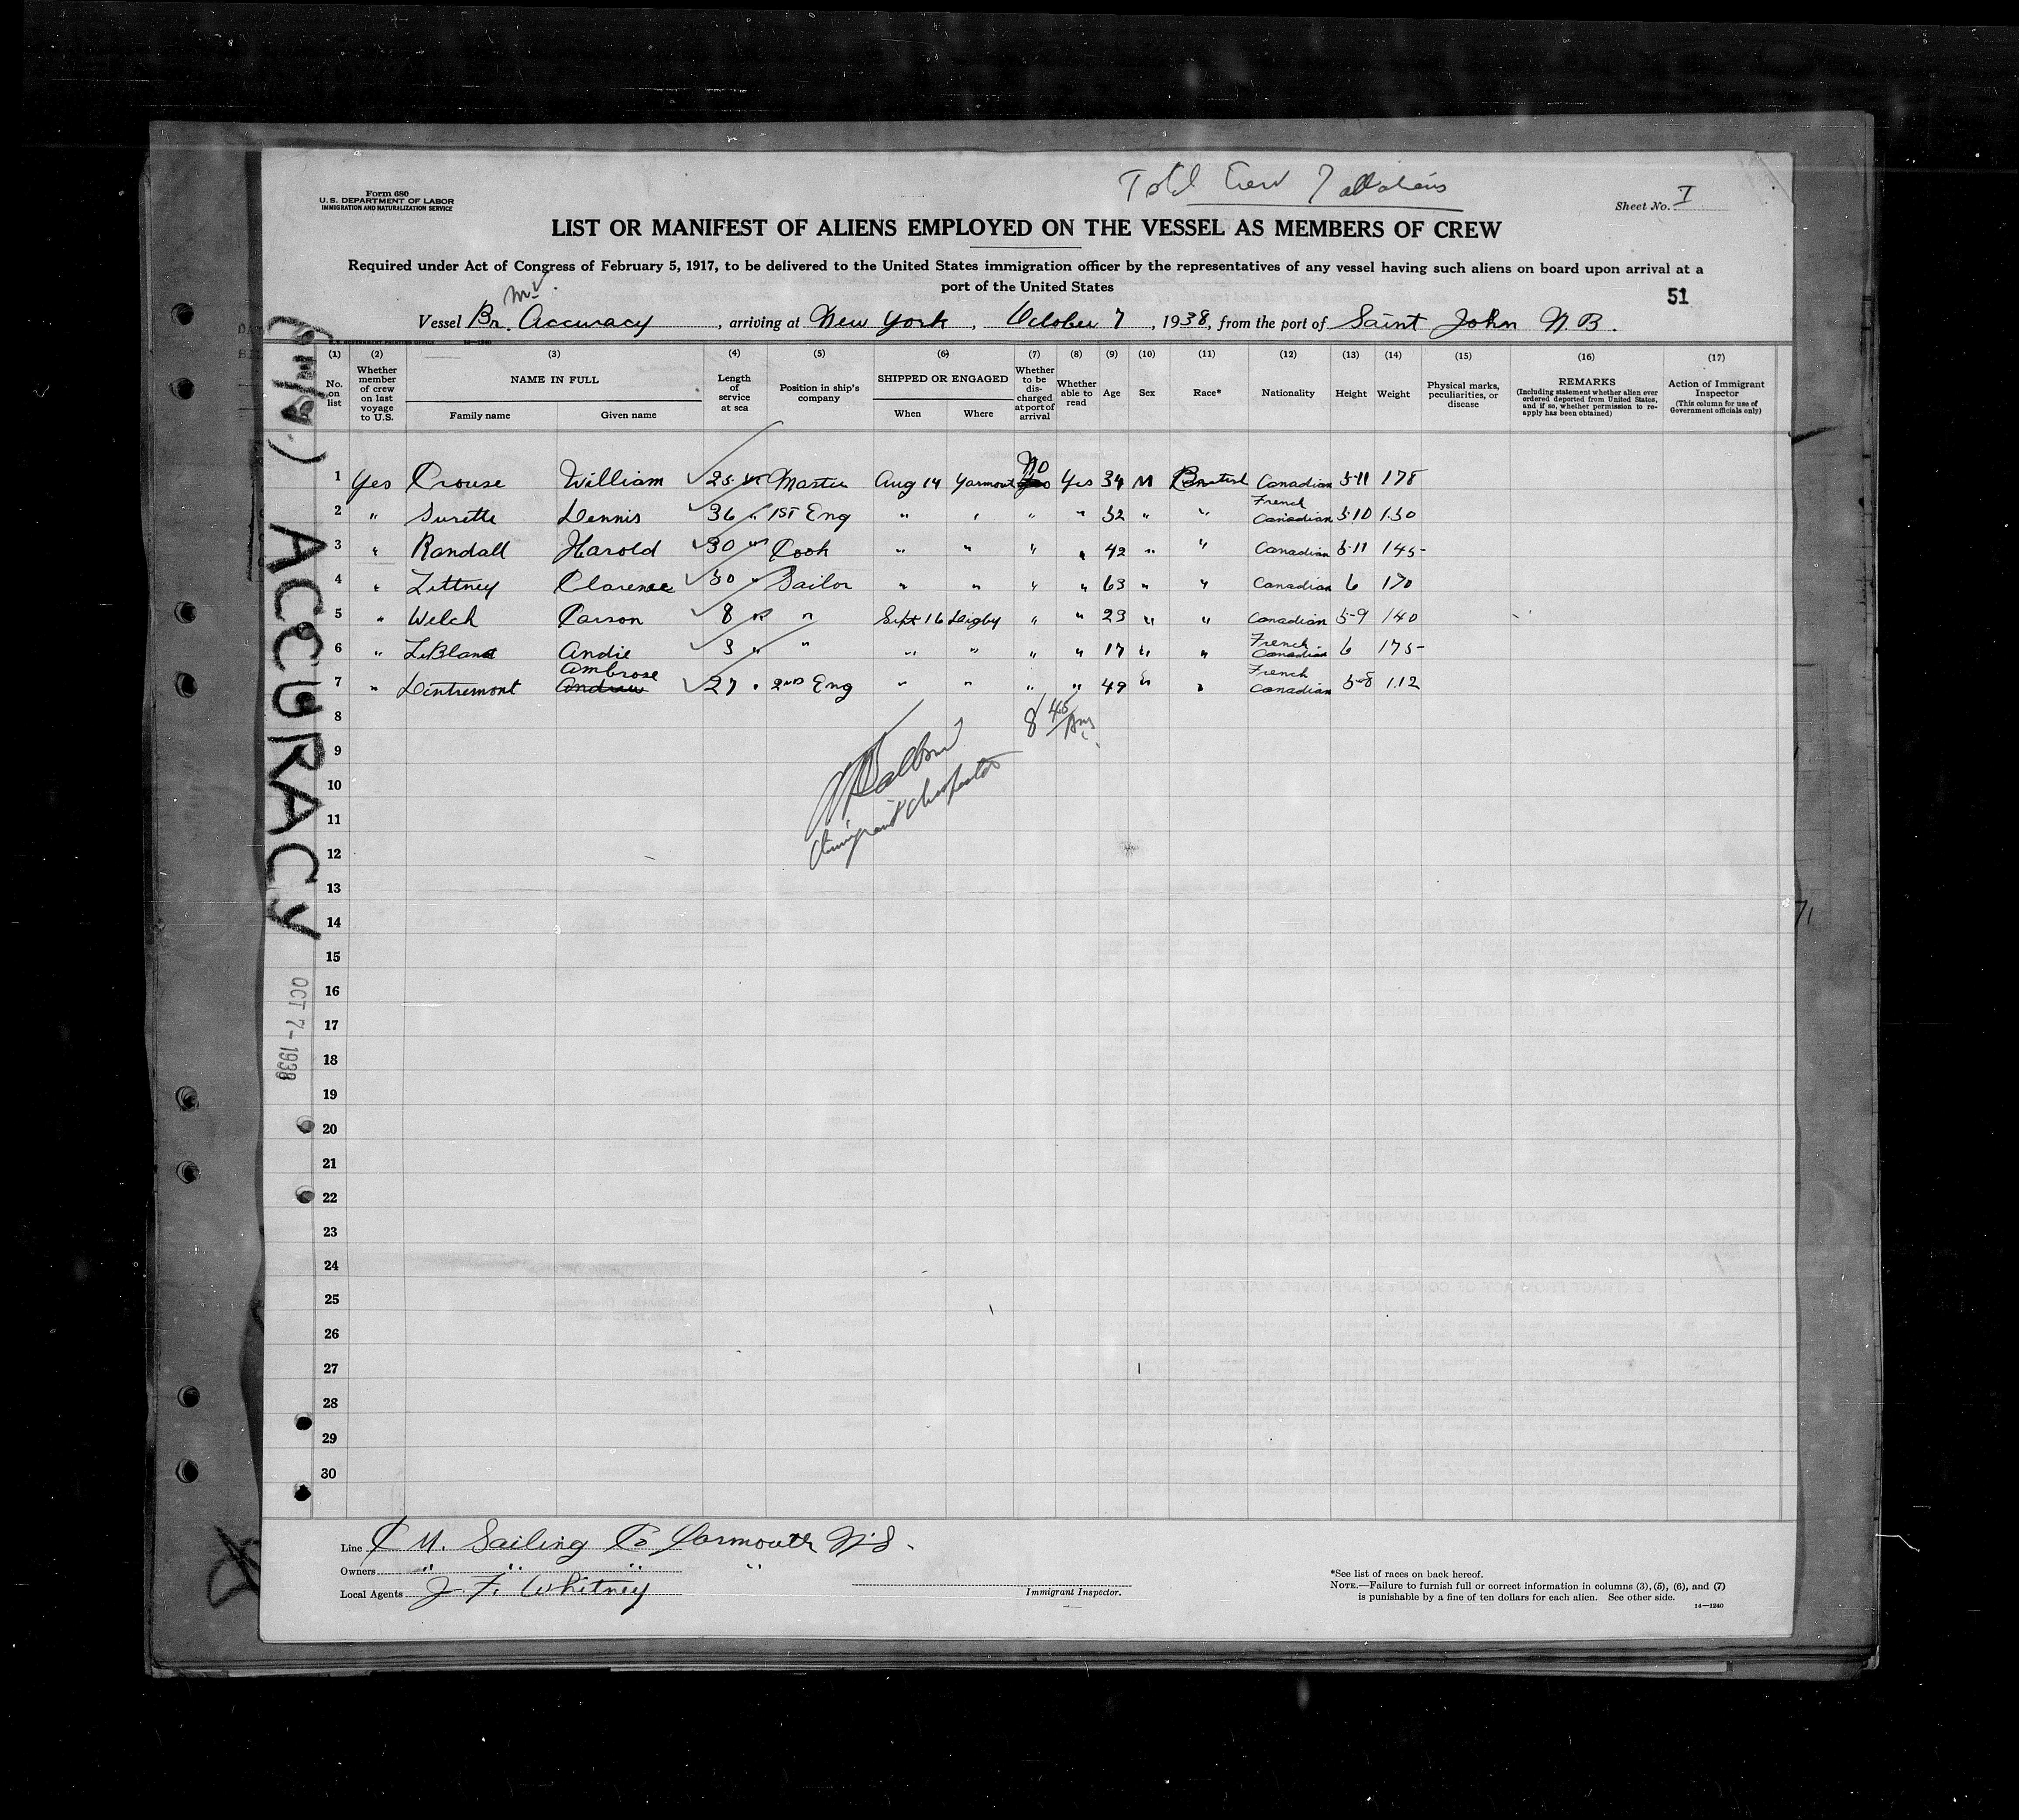 Total Crew 7 all aliens
Form 680
U.S. DEPARTMENT OF LABOR
IMMIGRATION AND NATURALIZATION SERVICE
Sheet No. I
LIST OR MANIFEST OF ALIENS EMPLOYED ON THE VESSEL AS MEMBERS OF CREW
Required under Act of Congress of February 5, 1917, to be delivered to the United States immigration officer by the representatives of any vessel having such aliens on board upon arrival at a
port of the United States
51
Vessel Br. Mv. Accuracy, arriving at New York, October 7, 1938, from the port of Saint John N.B.
(1) (2) (3) (4) (5) (6) (7) (8) (9) (10) (11) (12) (13) (14) (15) (16) (17)
No. on list
Whether member of crew on last voyage to U.S.
NAME IN FULL
Family name Given name
Length of service at sea
Position in ship's company
SHIPPED OR ENGAGED
When Where
Whether to be discharged at port of arrival
Whether able to read
Age
Sex
Race*
Nationality
Height
Weight
Physical marks, peculiarities, or disease
REMARKS
(Including statement whether alien ever ordered deported from United States, and if so, whether permission to reapply has been obtained)
Action of Immigrant Inspector
(This column for use of Government officials only)
1 Yes Crouse William 25 Master Aug 14 Yarmouth No Yes 34 M British Canadian 5-11 178
2 " Surette Dennis 36 " 1ST Eng " " " " 52 " " French Canadian 5-10 150
3 " Randall Harold 30 " Cook " " " " 42 " " Canadian 5-11 145
4 " Littney Clarence 50 " Sailor " " " " 63 " " Canadian 6 170
5 " Welch Carson 8 " " Sept 16 Digby " " 23 " " Canadian 5-9 140
6 " LeBlanc Andie 3 " " " " " " 17 " " French Canadian 6 175
7 " Dentremont Ambrose Andrew 27 " 2ND Eng " " " " 49 " " French Canadian 5-8 112
8
9
10
11
12
13
14
15
16
17
18
19
20
21
22
23
24
25
26
27
28
29
30
8 45 Am
Immigrant Inspector
ACCURACY
OCT 7 - 1938
Line C M. Sailing Co Yarmouth N.S.
Owners " " " "
Local Agents J. F. Whitney
Immigrant Inspector.
*See list of races on back hereof.
NOTE.—Failure to furnish full or correct information in columns (3), (5), (6), and (7)
is punishable by a fine of ten dollars for each alien. See other side.
14—1240